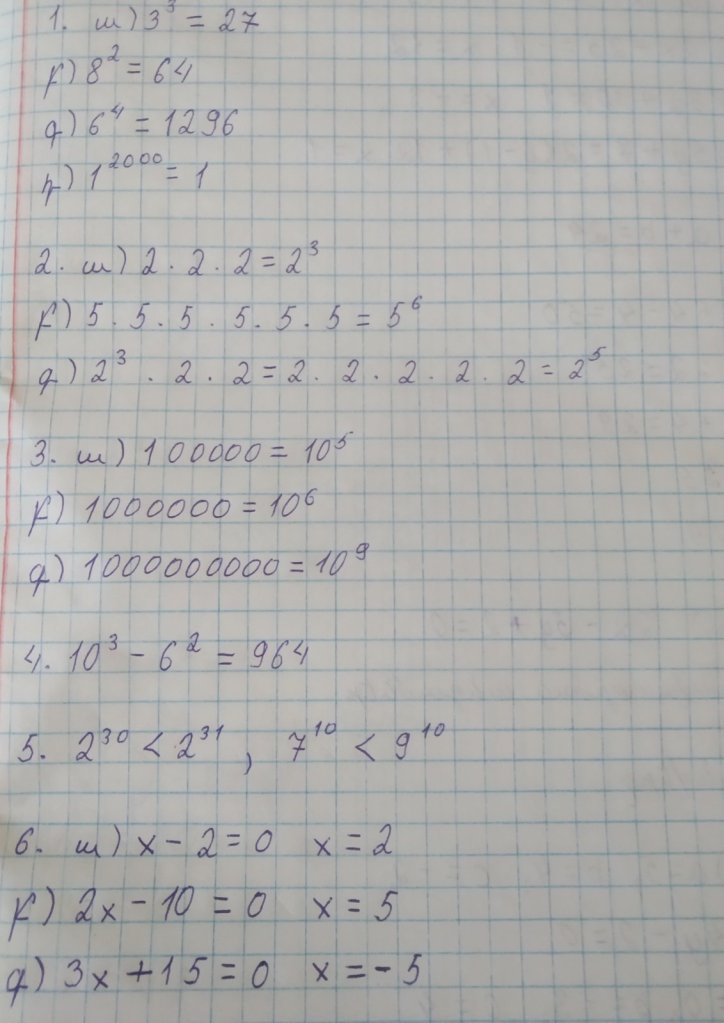 1. ա) 3³ = 27
բ) 8² = 64
գ) 6⁴ = 1296
դ) 1²⁰⁰⁰ = 1
2. ա) 2 · 2 · 2 = 2³
բ) 5 · 5 · 5 · 5 · 5 · 5 = 5⁶
գ) 2³ · 2 · 2 = 2 · 2 · 2 · 2 · 2 = 2⁵
3. ա) 100000 = 10⁵
բ) 1000000 = 10⁶
գ) 1000000000 = 10⁹
4. 10³ - 6² = 964
5. 2³⁰ < 2³¹ , 7¹⁰ < 9¹⁰
6. ա) x - 2 = 0 x = 2
բ) 2x - 10 = 0 x = 5
գ) 3x + 15 = 0 x = -5